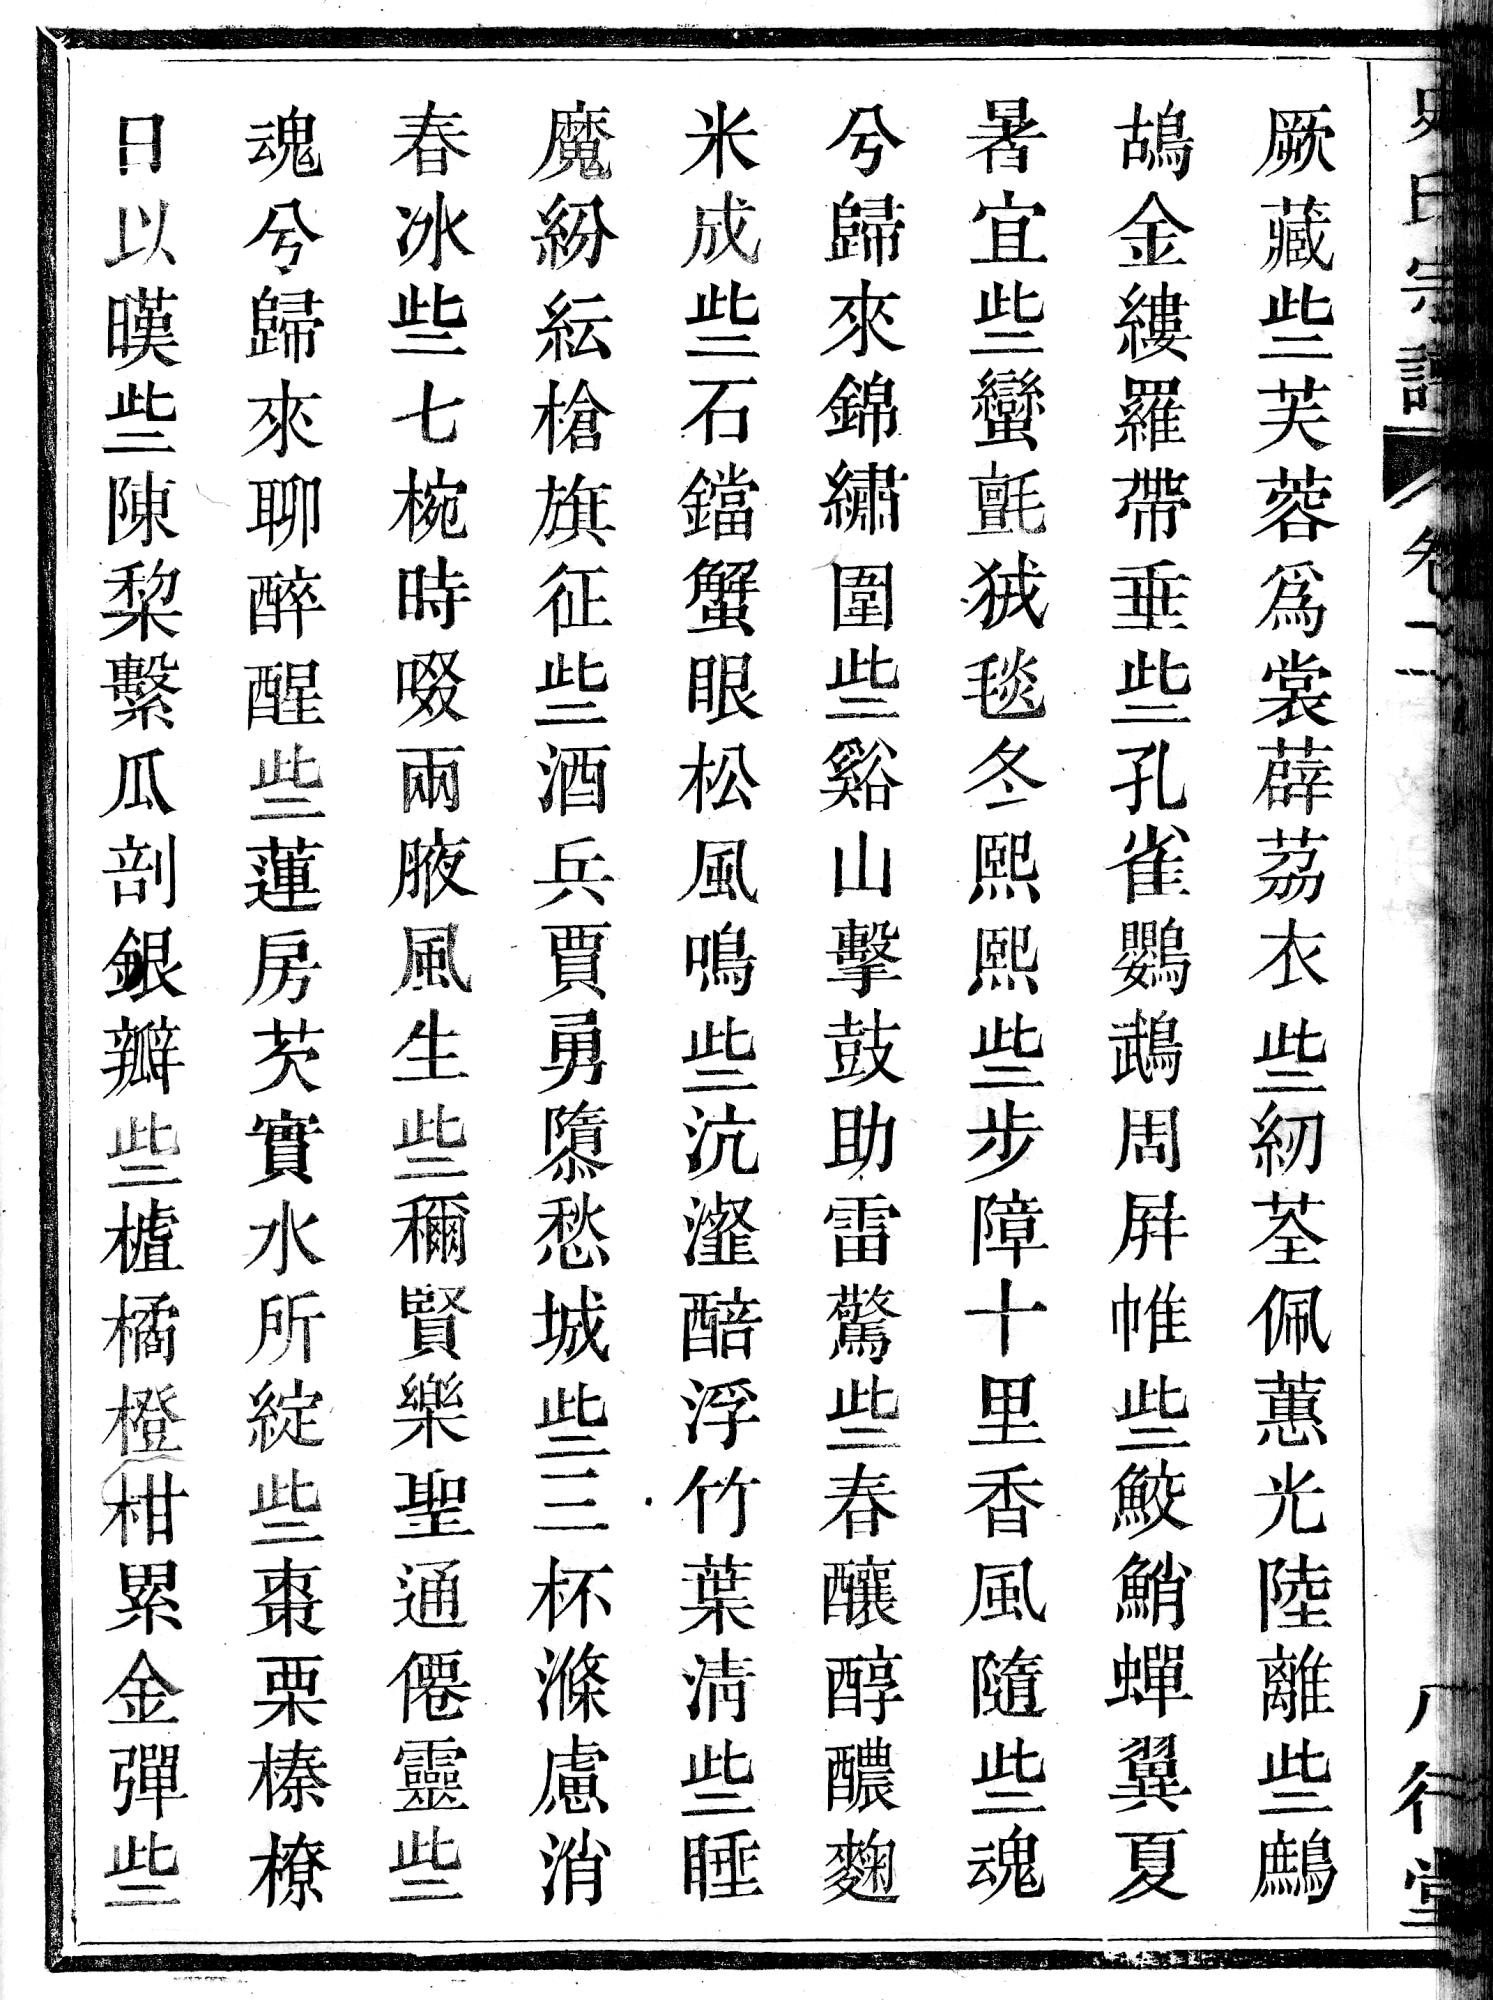 史氏宗譜 卷二 八行堂
厥藏些芙蓉爲裳薜荔衣些紉荃佩蕙光陸離些鷓
鴣金縷羅帶垂些孔雀鸚鵡周屛帷些鮫鮹蟬翼夏
暑宜些蠻氈狨毯冬熙熙些步障十里香風隨些魂
兮歸來錦繡圍些谿山擊鼓助雷驚些春釀醇醲麴
米成些石鐺蟹眼松風鳴些沆瀣醅浮竹葉淸些睡
魔紛紜槍旗征些酒兵賈勇隳愁城些三杯滌慮消
春冰些七椀時啜兩腋風生些稱賢樂聖通僊靈些
魂兮歸來聊醉醒些蓮房芡實水所綻些棗栗榛橑
日以暵些陳棃繫瓜剖銀瓣些樝橘橙柑累金彈些